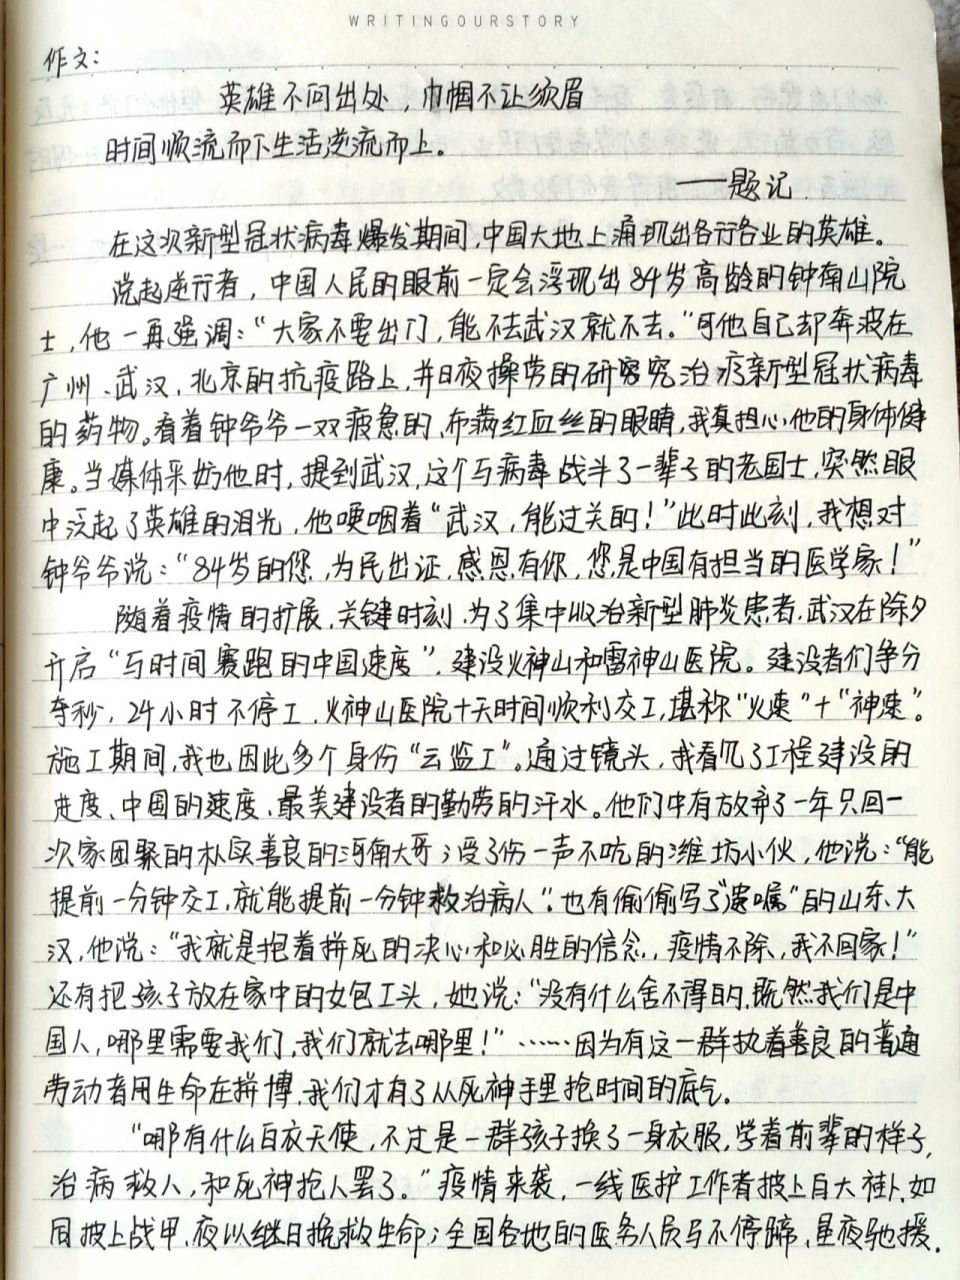 WRITINGOURSTORY
作文：
英雄不问出处，巾帼不让须眉
时间顺流而下生活逆流而上。
——题记.
在这次新型冠状病毒爆发期间，中国大地上涌现出各行各业的英雄。
说起逆行者，中国人民的眼前一定会浮现出84岁高龄的钟南山院
士，他一再强调：“大家不要出门，能不去武汉就不去。”可他自己却奔波在
广州、武汉，北京的抗疫路上，并日夜操劳的研究治疗新型冠状病毒
的药物。看着钟爷爷一双疲惫的、布满红血丝的眼睛，我真担心他的身体健
康。当媒体采访他时，提到武汉，这个与病毒战斗了一辈子的老国士，突然眼
中泛起了英雄的泪光，他哽咽着“武汉，能过关的！”此时此刻，我想对
钟爷爷说：“84岁的您，为民出证，感恩有你，您是中国有担当的医学家！”
随着疫情的扩展，关键时刻，为了集中收治新型肺炎患者，武汉在除夕
开启“与时间赛跑的中国速度”，建设火神山和雷神山医院。建设者们争分
夺秒，24小时不停工，火神山医院十天时间顺利交工，堪称“火速”+“神速”。
施工期间，我也因此多个身份“云监工”。通过镜头，我看见了工程建设的
进度、中国的速度、最美建设者的勤劳的汗水。他们中有放弃了一年只回一
次家团聚的朴实善良的河南大哥；受了伤一声不吭的潍坊小伙，他说：“能
提前一分钟交工，就能提前一分钟救治病人”。也有偷偷写了“遗嘱”的山东大
汉，他说：“我就是抱着拼死的决心和必胜的信念，疫情不除，我不回家！”
还有把孩子放在家中的女包工头，她说：“没有什么舍不得的，既然我们是中
国人，哪里需要我们，我们就去哪里！”……因为有这一群执着善良的普通
劳动者用生命在拼搏，我们才有了从死神手里抢时间的底气。
“哪有什么白衣天使，不过是一群孩子换了一身衣服，学着前辈的样子，
治病救人，和死神抢人罢了。”疫情来袭，一线医护工作者披上白大褂，如
同披上战甲，夜以继日挽救生命；全国各地的医务人员马不停蹄，星夜驰援.